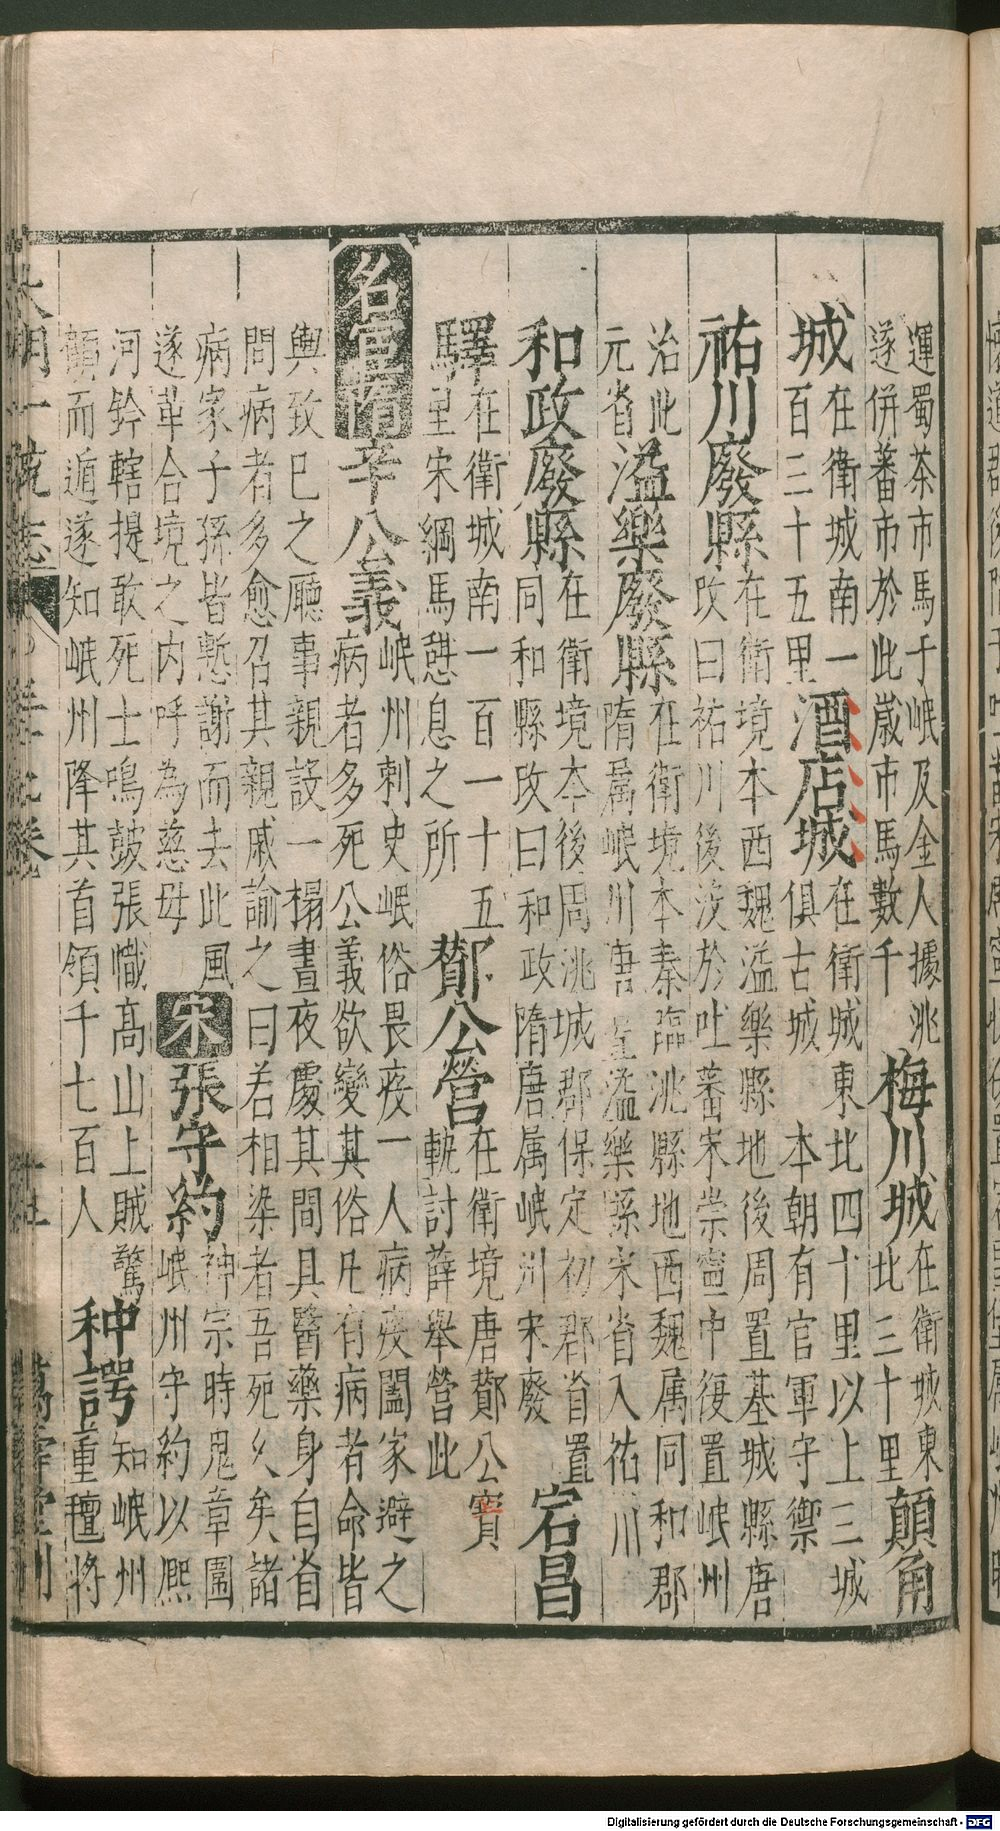 運蜀茶市馬于岷及金人據洮
遂併蕃市於此歲市馬數千
梅川城
在衛城東
北三十里
顛角
城
在衛城南一
百三十五里
酒店城
在衛城東北四十里以上三城
俱古城 本朝有官軍守禦
祐川廢縣
在衛境本西魏溢樂縣地後周置基城縣唐
改曰祐川後沒於吐蕃宋崇寧中復置岷州
治此
元省
溢樂廢縣
在衛境本秦臨洮縣地西魏属同和郡
隋属岷川唐置溢樂縣宋省入祐川
和政廢縣
在衛境本後周洮城郡保定初郡省置
同和縣改曰和政隋唐属岷州宋廢
宕昌
驛
在衛城南一百一十五
里宋綱馬憇息之所
鄼公營
在衛境唐鄼公寳
軌討薛舉營此
名宦
隋
辛公義
岷州刺史岷俗畏疫一人病疫闔家避之
病者多死公義欲變其俗凡有病者命皆
輿致巳之廳事親設一榻晝夜處其間具醫藥身自省
問病者多愈召其親戚諭之曰若相染者吾死久矣諸
病家子孫皆慙謝而去此風
遂革合境之内呼為慈母
宋
張守約
神宗時鬼章圍
岷州守約以熈
河鈐轄提敢死士鳴鼓張幟高山上賊驚
顛而遁遂知岷州降其首領千七百人
种諤
知岷州
董氊將
大明一統志
卷
萬壽堂刊
Digitalisierung gefördert durch die Deutsche Forschungsgemeinschaft - DFG